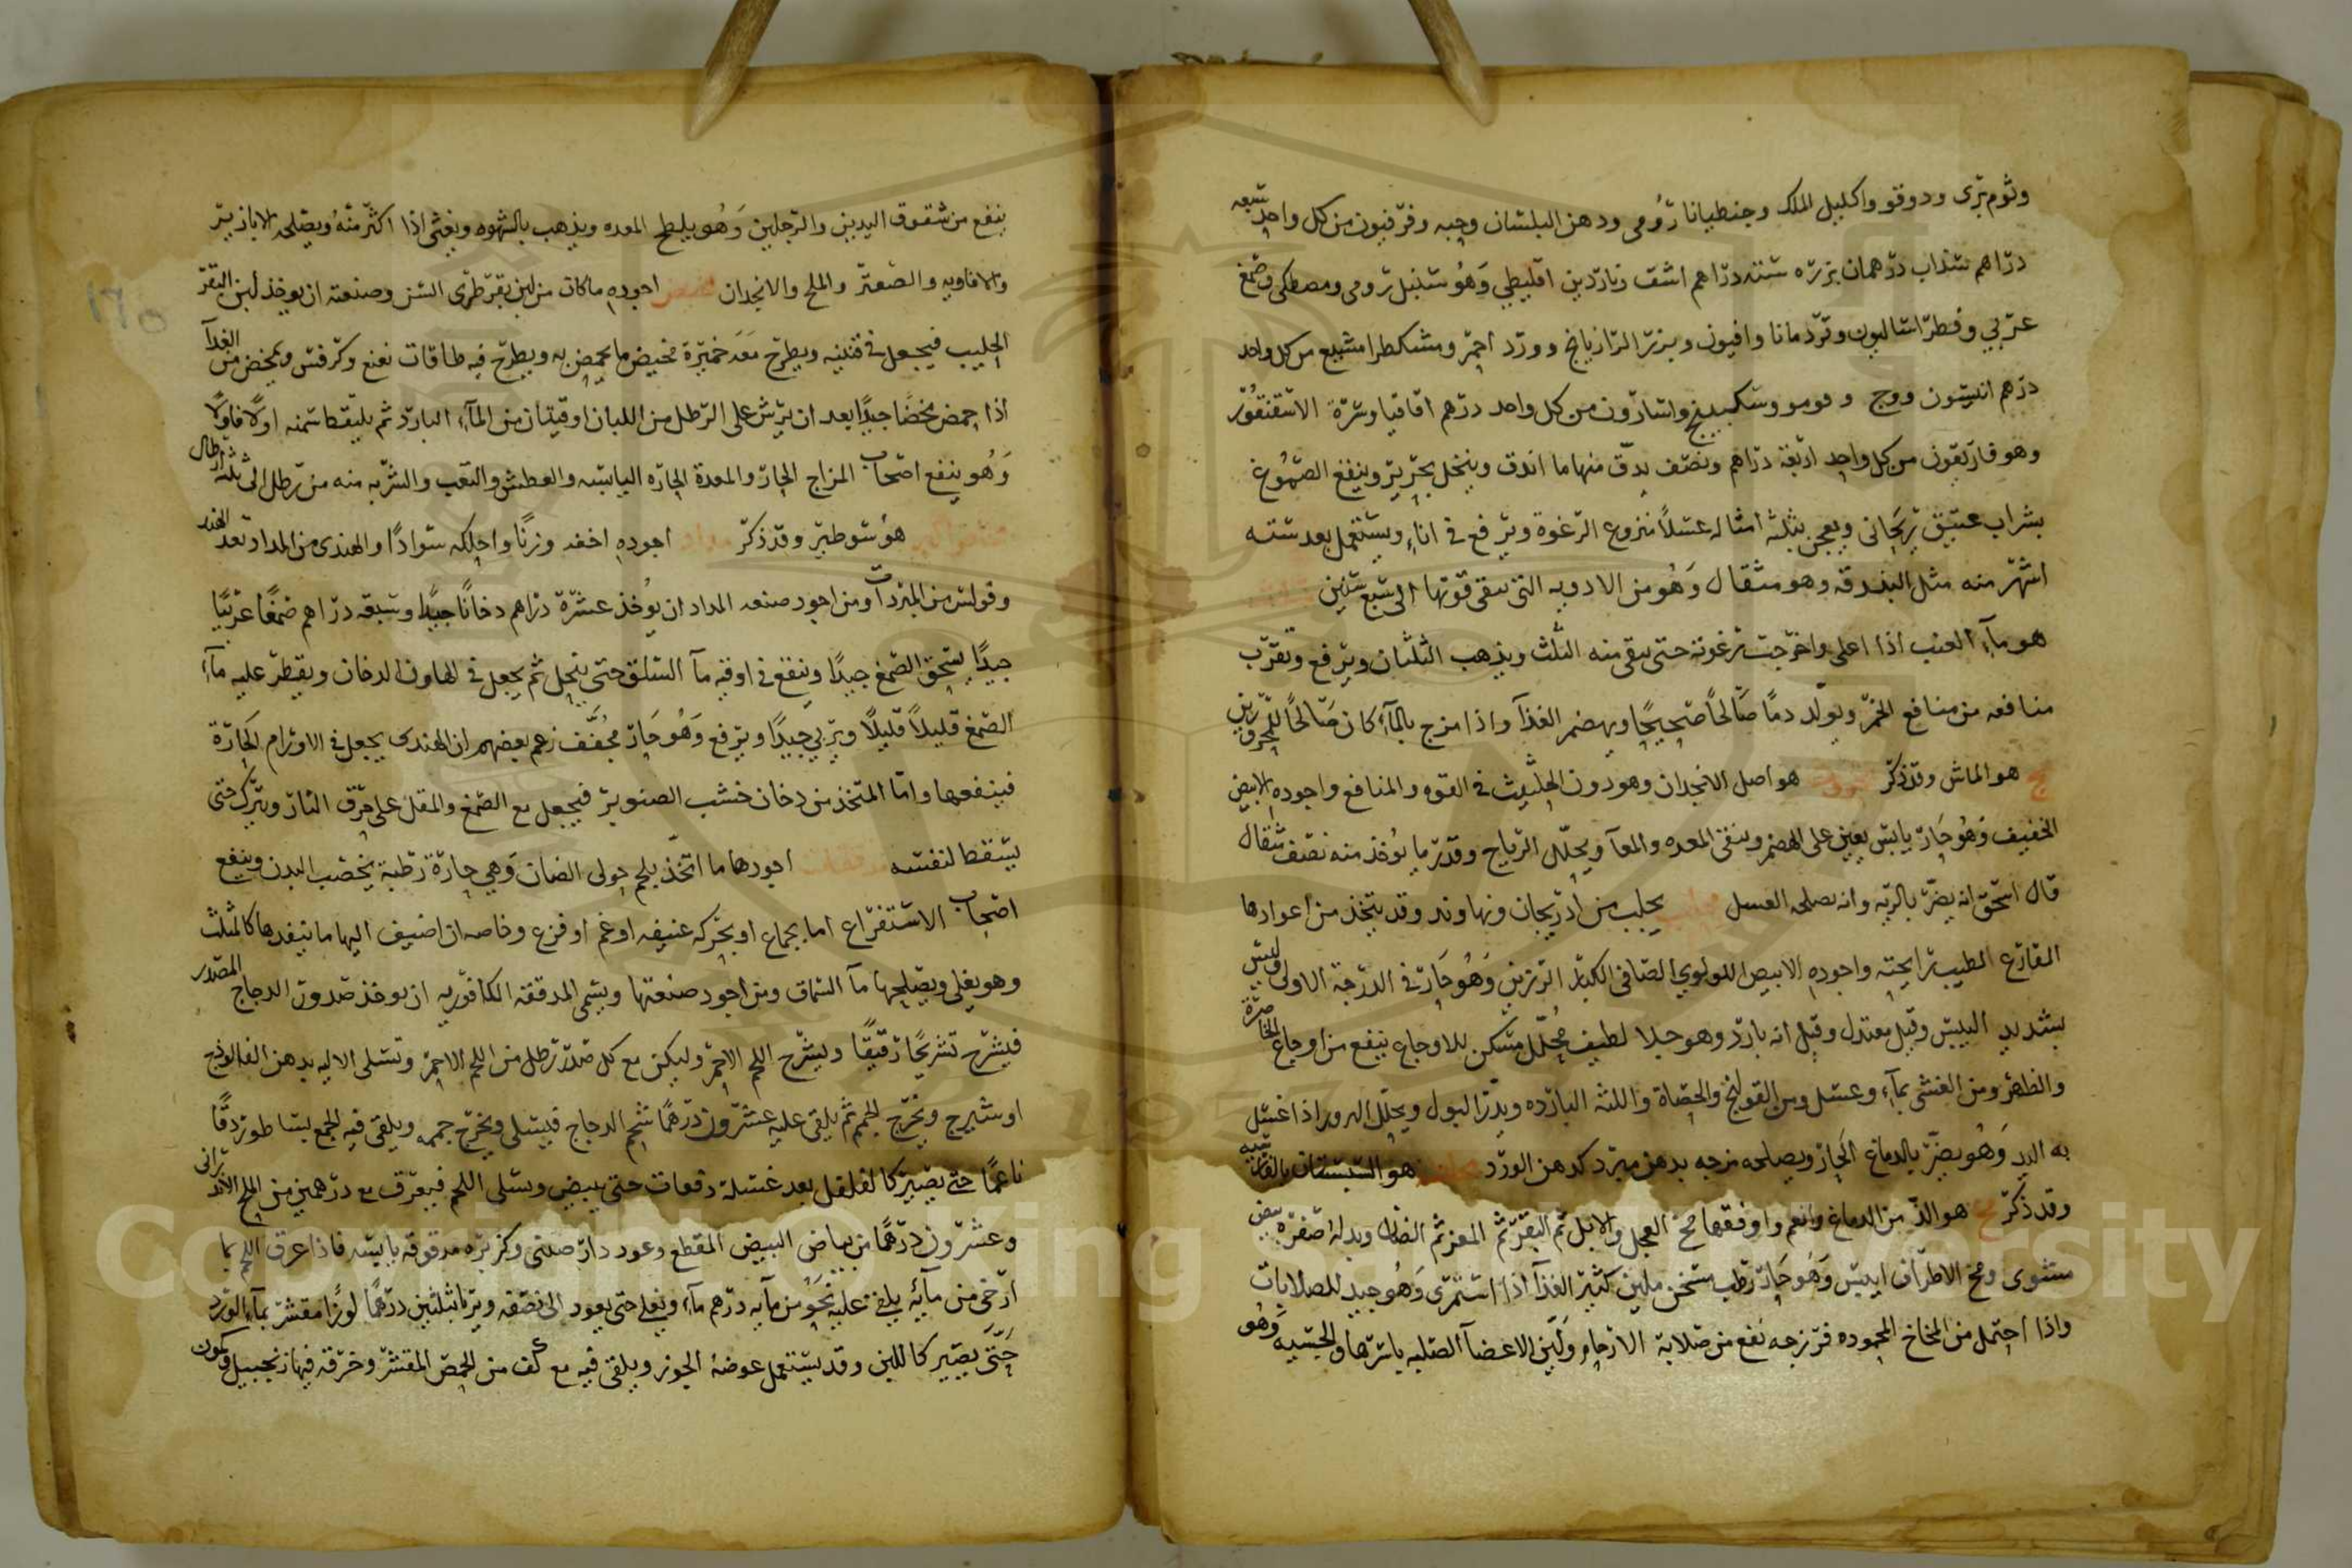 وثوم بري ودوقو واكليل الملك وجنطيانا رومي ودهن البلسان وحبه وفرفيون من كل واحد سبعه
دراهم سنداب درهمان بزره سته دراهم اشق ناردين اقليطي وهو سنبل رومي ومصطكي وصمغ
عربي وفطراساليون وقردمانا وافيون وبزر الرازيانج وورد احمر ومشكطرامشيع من كل واحد
درهم انيسون ووج وفومو وسكبينج واسارون من كل واحد درهم اقاقيا وسرة الاسقنقور
وهوفاريقون من كل واحد اربعة دراهم ونصف يدق منها ما اندق وينخل بحرير وينقع الصموغ
بشراب عتيق ريحاني ويعجن بثلثة امثاله عسلا منزوع الرغوة ويرفع في اناء ويستعمل بعد سته
اشهر منه مثل البندقه وهو مثقال وهو من الادويه التي تبقى قوتها الى سبع سنين
هو ماء العنب اذا اغلى واخرجت رغوته حتى يبقى منه الثلث ويذهب الثلثان ويرفع وتقرب
منافعه من منافع الخمر ويولد دما صالحا صحيحا ويهضم الغذا واذا مزج بالماء كان صالحا للمحرورين
مج هو الماش وقد ذكر هو اصل الانجدان وهو دون الحلتيت في القوه والمنافع واجوده الابيض
الخفيف وهو حار يابس يعين على الهضم وينقي المعده والمعا ويحلل الرياح وقدر ما يؤخذ منه نصف مثقال
قال اسحق انه يضر بالريه وانه يصلحه العسل محلب يجلب من اذربيجان ونهاوند وقد يتخذ من اعوادها
المقارع الطيب رايحته واجوده الابيض اللولوي الصافي الكبار الرزين وهو حار في الدرجة الاولى وليس
بشديد اليبس وقيل معتدل وقيل انه بارد وهو جلا لطيف محلل مسكن للاوجاع ينفع من اوجاع الخاصرة
والظهر ومن الغشي بماء وعسل ومن القولنج والحصاة واللثه البارده ويدر البول ويحلل الهرور اذا غسل
به اليد وهو يضر بالدماغ الحار ويصلحه مزجه بدهن مبرد كدهن الورد هو السبستان بالفارسيه
وقد ذكر مخ هو الذ من الدماغ وانعم واوفقها مخ العجل والابل ثم البقر ثم المعز ثم الضان وبدله صفرة بيض
مشوى ومخ الاطراف ايبس وهو حار رطب مسخن ملين كثير الغذا اذا استمرى وهو جيد للصلابات
واذا احتمل من المخاخ المحموده فرزجه نفع من صلابة الارحام ولين الاعضا الصلبه باسرها والحسيه وهو
ينفع من شقوق اليدين والرجلين وهو يلطخ المعده ويذهب بالشهوه ويغثي اذا اكثر منه ويصلحه الابازير
والافاويه والصعتر والملح والانجدان مخيض اجوده ما كان من لبن بقر طرى السن وصنعته ان يوخذ لبن البقر
الحليب فيجعل في قنينه ويطرح معه خميرة مخيض ما يحمض به ويطرح فيه طاقات نعنع وكرفس ويمخض من الغدا
اذا حمض مخضا جيدا بعد ان يرش على الرطل من اللبان اوقيتان من الماء البارد ثم يلتقط سمنه اولا فاولا
وهو ينفع اصحاب المزاج الحار والمعدة الحاره اليابسه والعطش والتعب والشربه منه من رطل الى ثلثه ارطال
هو شوطبر وقد ذكر مداد اجوده اخفه وزنا واحلكه سوادا والهندى من المداد تعده الهند
وقولس من المبردات ومن اجود صنعه المداد ان يؤخذ عشرة دراهم دخانا جيدا وسبعه دراهم صمغا عربيا
جيدا يسحق الصمغ جيدا وينقع في اوقيه ماء السلق حتى ينحل ثم يجعل في الهاون الدخان ويقطر عليه ماء
الصمغ قليلا قليلا ويربي جيدا ويرفع وهو حار مجفف زعم بعضهم ان الهندى يجعل في الاورام الحارة
فينفعها واما المتخذ من دخان خشب الصنوبر فيجعل مع الصمغ والمقل على حرق النار ويترك حتى
يسقط لنفسه مدققات اجودها ما اتخذ بلحم حولى الضان وهي حارة رطبة يخصب البدن وينفع
اصحاب الاستفراغ اما بجماع او بحركه عنيفه او غم او فزع وخاصه ان اضيف اليها ما ينفدها كالمثلث
وهو يغلى ويصلحها ماء السماق ومن اجود صنعتها ويسمى المدققه الكافوريه ان يوخذ صدور الدجاج المصدر
فيشرح تشريحا رقيقا ويشرح اللحم الاحمر وليكن مع كل صدر رطل من اللحم الاحمر وتسلى الاليه بدهن الفالوذج
او شيرج ويخرج الحمم ثم يلقى عليه عشرون درهما شحم الدجاج فيسلى ويخرج حممه ويلقى فيه الجمع بساطور دقا
ناعما حتى يصير كالفلفل بعد غسله دفعات حتى يبيض ويسلى اللحم فيعرق مع درهمين من الملح الاندرانى
وعشرون درهما من بياض البيض المقطع وعود دارصينى وكزبره مدقوقه يابسه فاذا عرق اللحم بما
ارخى من مائه يلقى عليه نحو من مايه درهم ماء ويغلى حتى يعود الى نصفه ويربا بثلثين درهما لوزا مقشر بماء الورد
حتى يصير كاللبن وقد يستعمل عوضه الجوز ويلقى فيه مع كف من الحمص المقشر وخرقه فيها زنجبيل وكمون